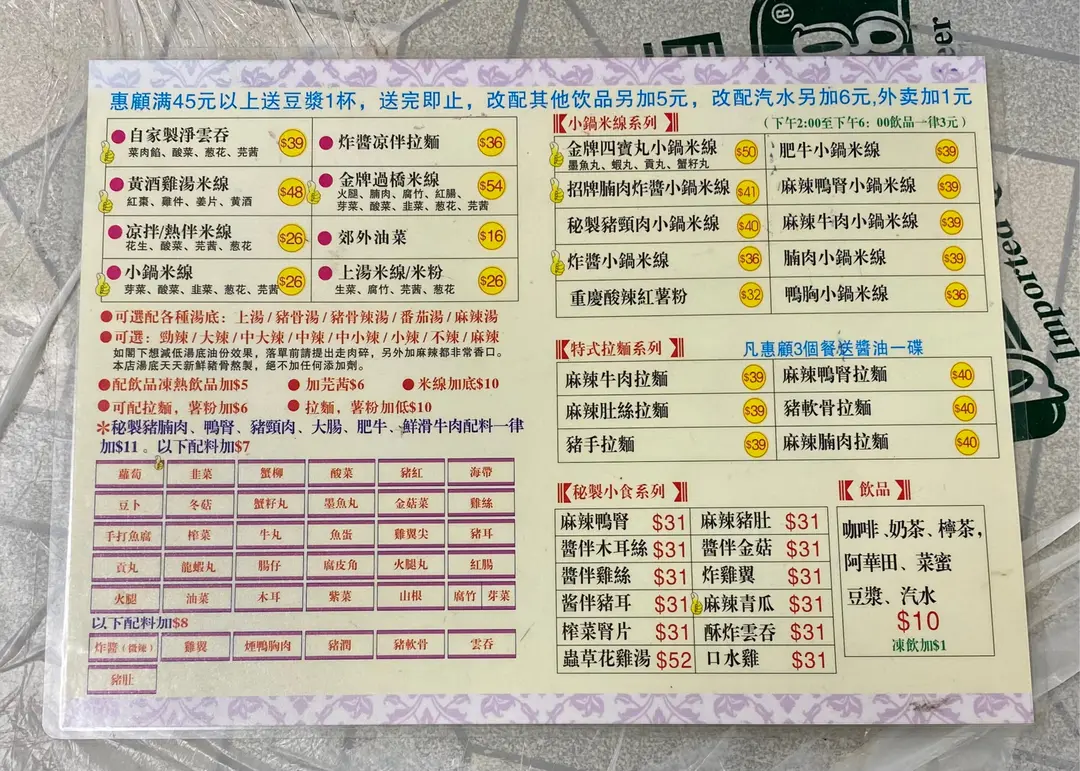 惠顧满45元以上送豆漿1杯，送完即止，改配其他饮品另加5元，改配汽水另加6元,外卖加1元
自家製淨雲吞 $39
菜肉餡、酸菜、葱花、芫茜
炸醬凉伴拉麵 $36
黃酒雞湯米線 $48
紅棗、雞件、姜片、黄酒
金牌過橋米線 $54
火腿、腩肉、腐竹、紅腸、
芽菜、酸菜、韭菜、葱花、芫茜
凉拌/熱伴米線 $26
花生、酸菜、芫茜、葱花
郊外油菜 $16
小鍋米線 $26
芽菜、酸菜、韭菜、葱花、芫茜
上湯米線/米粉 $26
生菜、腐竹、芫茜、葱花
可選配各種湯底：上湯/豬骨湯/豬骨辣湯/番茄湯/麻辣湯
可選：勁辣/大辣/中大辣/中辣/中小辣/小辣/不辣/麻辣
如閣下想減低湯底油份效果，落單前請提出走肉碎，另外加麻辣都非常香口。
本店湯底天天新鮮豬骨熬製，絕不加任何添加劑。
配飲品凍熱飲品加$5 加芫茜$6 米線加底$10
可配拉麵，薯粉加$6 拉麵，薯粉加低$10
*秘製豬腩肉、鴨腎、豬頸肉、大腸、肥牛、鮮滑牛肉配料一律
加$11 。以下配料加$7
蘿蔔 韭菜 蟹柳 酸菜 豬紅 海帶
豆卜 冬菇 蟹籽丸 墨魚丸 金菇菜 雞絲
手打魚腐 榨菜 牛丸 魚蛋 雞翼尖 豬耳
貢丸 龍蝦丸 腸仔 腐皮角 火腿丸 紅腸
火腿 油菜 木耳 紫菜 山根 腐竹 芽菜
以下配料加$8
炸醬（微辣） 雞翼 煙鴨胸肉 豬潤 豬軟骨 雲吞
豬肚
小鍋米線系列 (下午2:00至下午6：00飲品一律3元)
金牌四寶丸小鍋米線 $50
墨魚丸、蝦丸、貢丸、蟹籽丸
肥牛小鍋米線 $39
招牌腩肉炸醬小鍋米線 $41
麻辣鴨腎小鍋米線 $39
秘製豬頸肉小鍋米線 $40
麻辣牛肉小鍋米線 $39
炸醬小鍋米線 $36
腩肉小鍋米線 $39
重慶酸辣紅薯粉 $32
鴨胸小鍋米線 $36
特式拉麵系列 凡惠顧3個餐送醬油一碟
麻辣牛肉拉麵 $39 麻辣鴨腎拉麵 $40
麻辣肚絲拉麵 $39 豬軟骨拉麵 $40
豬手拉麵 $39 麻辣腩肉拉麵 $40
秘製小食系列
麻辣鴨腎 $31 麻辣豬肚 $31
醬伴木耳絲 $31 醬伴金菇 $31
醬伴雞絲 $31 炸雞翼 $31
酱伴豬耳 $31 麻辣青瓜 $31
榨菜腎片 $31 酥炸雲吞 $31
蟲草花雞湯 $52 口水雞 $31
飲品
咖啡、奶茶、檸茶，
阿華田、菜蜜
豆漿、汽水
$10
凍飲加$1
®
g
eer
Imported